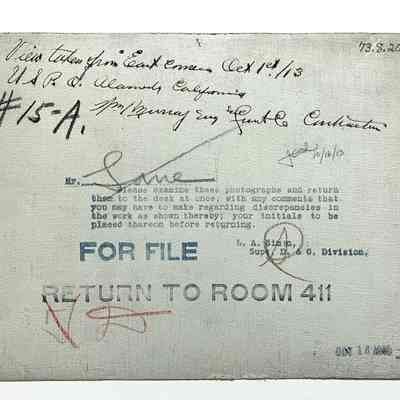 View taken from East corner Oct 1st/13
73.8.20
U.S.P.O. Alameda California
#15-A.
Wm Murray Eng & Const Co Contractor
10/16/13
Mr. Lane
Please examine these photographs and return
them to the desk at once, with any comments that
you may have to make regarding discrepancies in
the work as shown thereby; your initials to be
placed thereon before returning.
L. A. Simon,
Supt. D. & G. Division.
FOR FILE
RETURN TO ROOM 411